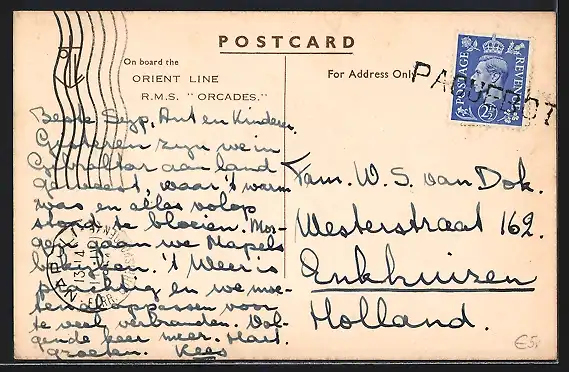 POSTCARD
On board the
ORIENT LINE
R.M.S. "ORCADES."
For Address Only
PAQUEBOT
POSTAGE
REVENUE
2½
Beste Sijp, Ant en Kinderen.
Gisteren zijn we in
Gibraltar aan land
geweest, waar 't warm
was en alles volop
stond te bloeien. Mor-
gen gaan we Napels
bekijken. 't Weer is
prachtig en we moe-
ten oppassen voor
te veel verbranden. Vol-
gende keer meer. Hart.
groeten. Kees
Fam. W. S. van Dok.
Westerstraat 162.
Enkhuizen
Holland.
NAPOLI
FERR
13-14
€5,